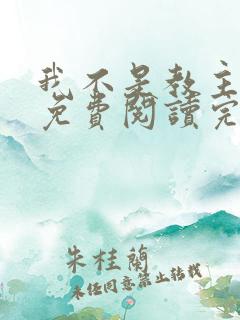 我不是教主
免費閱讀完
朱桂蘭
未经同意禁止转载